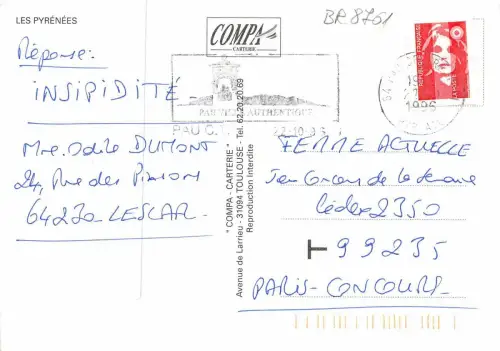 LES PYRÉNÉES
BR 8761
COMPA
CARTERIE
Réponse:
INSIPIDITÉ
Mme Odile DUMONT
24, Rue des Pinsons
64230 LESCAR
PAU C.T.
22-10-96
1996
RÉPUBLIQUE FRANÇAISE
" COMPA - CARTERIE "
Avenue de Larrieu - 31094 TOULOUSE - Tel. 62.20.20.69
Reproduction Interdite
FEMME ACTUELLE
Jeu Concours de la semaine
Cédex 2350
T 99235
PARIS-CONCOURS